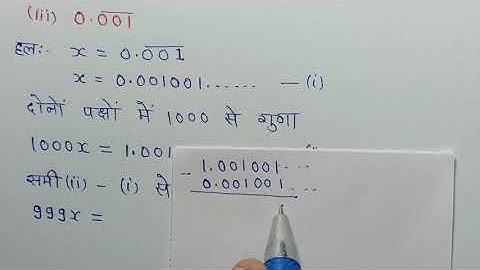 (iii) 0.0̅0̅1̅
हल:- x = 0.0̅0̅1̅
x = 0.001001...... — (i)
दोनों पक्षों में 1000 से गुणा
1000x = 1.001
समी (ii) - (i) से
999x =
1.001001...
- 0.001001...